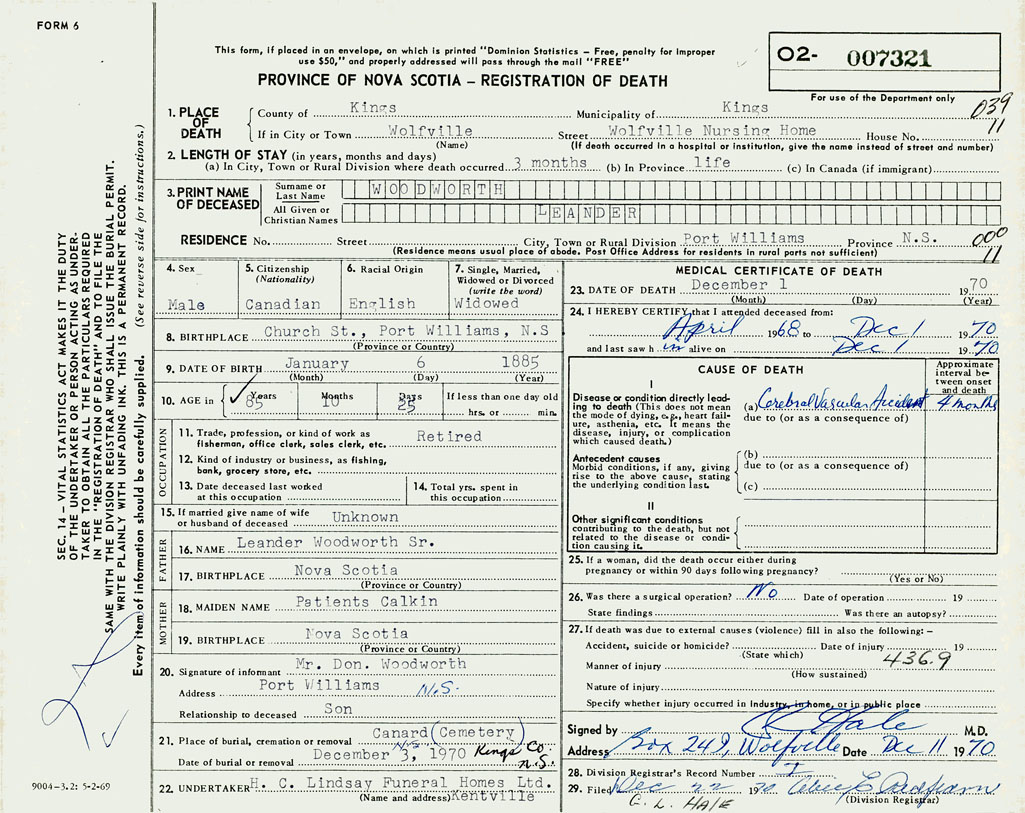 FORM 6
This form, if placed in an envelope, on which is printed "Dominion Statistics – Free, penalty for improper
use $50," and properly addressed will pass through the mail "FREE"
PROVINCE OF NOVA SCOTIA – REGISTRATION OF DEATH
02- 007321
For use of the Department only
039
11
1. PLACE OF DEATH
County of Kings Municipality of Kings
If in City or Town Wolfville Street Wolfville Nursing Home House No.
(Name) (If death occurred in a hospital or institution, give the name instead of street and number)
2. LENGTH OF STAY (in years, months and days)
(a) In City, Town or Rural Division where death occurred 3 months (b) In Province life (c) In Canada (if immigrant)
3. PRINT NAME OF DECEASED
Surname or Last Name WOODWORTH
All Given or Christian Names LEANDER
RESIDENCE No. Street City, Town or Rural Division Port Williams Province N.S. 000
(Residence means usual place of abode. Post Office Address for residents in rural parts not sufficient) 11
4. Sex
Male
5. Citizenship (Nationality)
Canadian
6. Racial Origin
English
7. Single, Married, Widowed or Divorced (write the word)
Widowed
8. BIRTHPLACE Church St., Port Williams, N.S
(Province or Country)
9. DATE OF BIRTH January 6 1885
(Month) (Day) (Year)
10. AGE in Years Months Days If less than one day old
85 10 25 hrs. or min.
OCCUPATION
11. Trade, profession, or kind of work as
fisherman, office clerk, sales clerk, etc. Retired
12. Kind of industry or business, as fishing,
bank, grocery store, etc.
13. Date deceased last worked
at this occupation
14. Total yrs. spent in
this occupation
15. If married give name of wife
or husband of deceased Unknown
FATHER
16. NAME Leander Woodworth Sr.
17. BIRTHPLACE Nova Scotia
(Province or Country)
MOTHER
18. MAIDEN NAME Patients Calkin
19. BIRTHPLACE Nova Scotia
(Province or Country)
20. Signature of informant Mr. Don. Woodworth
Address Port Williams N.S.
Relationship to deceased Son
21. Place of burial, cremation or removal Canard (Cemetery)
N.S. Kings Co. N.S.
Date of burial or removal December 3, 1970
22. UNDERTAKER H. C. Lindsay Funeral Homes Ltd.
(Name and address) Kentville
MEDICAL CERTIFICATE OF DEATH
23. DATE OF DEATH December 1 1970
(Month) (Day) (Year)
24. I HEREBY CERTIFY that I attended deceased from:
April 1968 to Dec 1 1970
and last saw h im alive on Dec 1 1970
CAUSE OF DEATH
Approximate interval between onset and death
I
Disease or condition directly leading to death (This does not mean the mode of dying, e.g., heart failure, asthenia, etc. It means the disease, injury, or complication which caused death.)
(a) Cerebral Vascular Accident 4 months
due to (or as a consequence of)
Antecedent causes
Morbid conditions, if any, giving rise to the above cause, stating the underlying condition last.
(b)
due to (or as a consequence of)
(c)
II
Other significant conditions
contributing to the death, but not related to the disease or condition causing it.
25. If a woman, did the death occur either during
pregnancy or within 90 days following pregnancy?
(Yes or No)
26. Was there a surgical operation? No Date of operation 19
State findings Was there an autopsy?
27. If death was due to external causes (violence) fill in also the following: –
Accident, suicide or homicide? Date of injury 19
(State which) 436.9
Manner of injury
(How sustained)
Nature of injury
Specify whether injury occurred in Industry, in home, or in public place
Signed by Hale M.D.
Address Box 249, Wolfville Date Dec 11 1970
28. Division Registrar's Record Number
29. Filed Dec 22 1970
(Division Registrar)
HALE
SEC. 14 – VITAL STATISTICS ACT MAKES IT THE DUTY
OF THE UNDERTAKER OR PERSON ACTING AS UNDER-
TAKER TO OBTAIN ALL THE PARTICULARS REQUIRED
IN THE "REGISTRATION OF DEATH" AND TO FILE THE
SAME WITH THE DIVISION REGISTRAR WHO SHALL ISSUE THE BURIAL PERMIT.
WRITE PLAINLY WITH UNFADING INK. THIS IS A PERMANENT RECORD.
Every item of information should be carefully supplied. (See reverse side for instructions.)
9004-3.2: 5-2-69